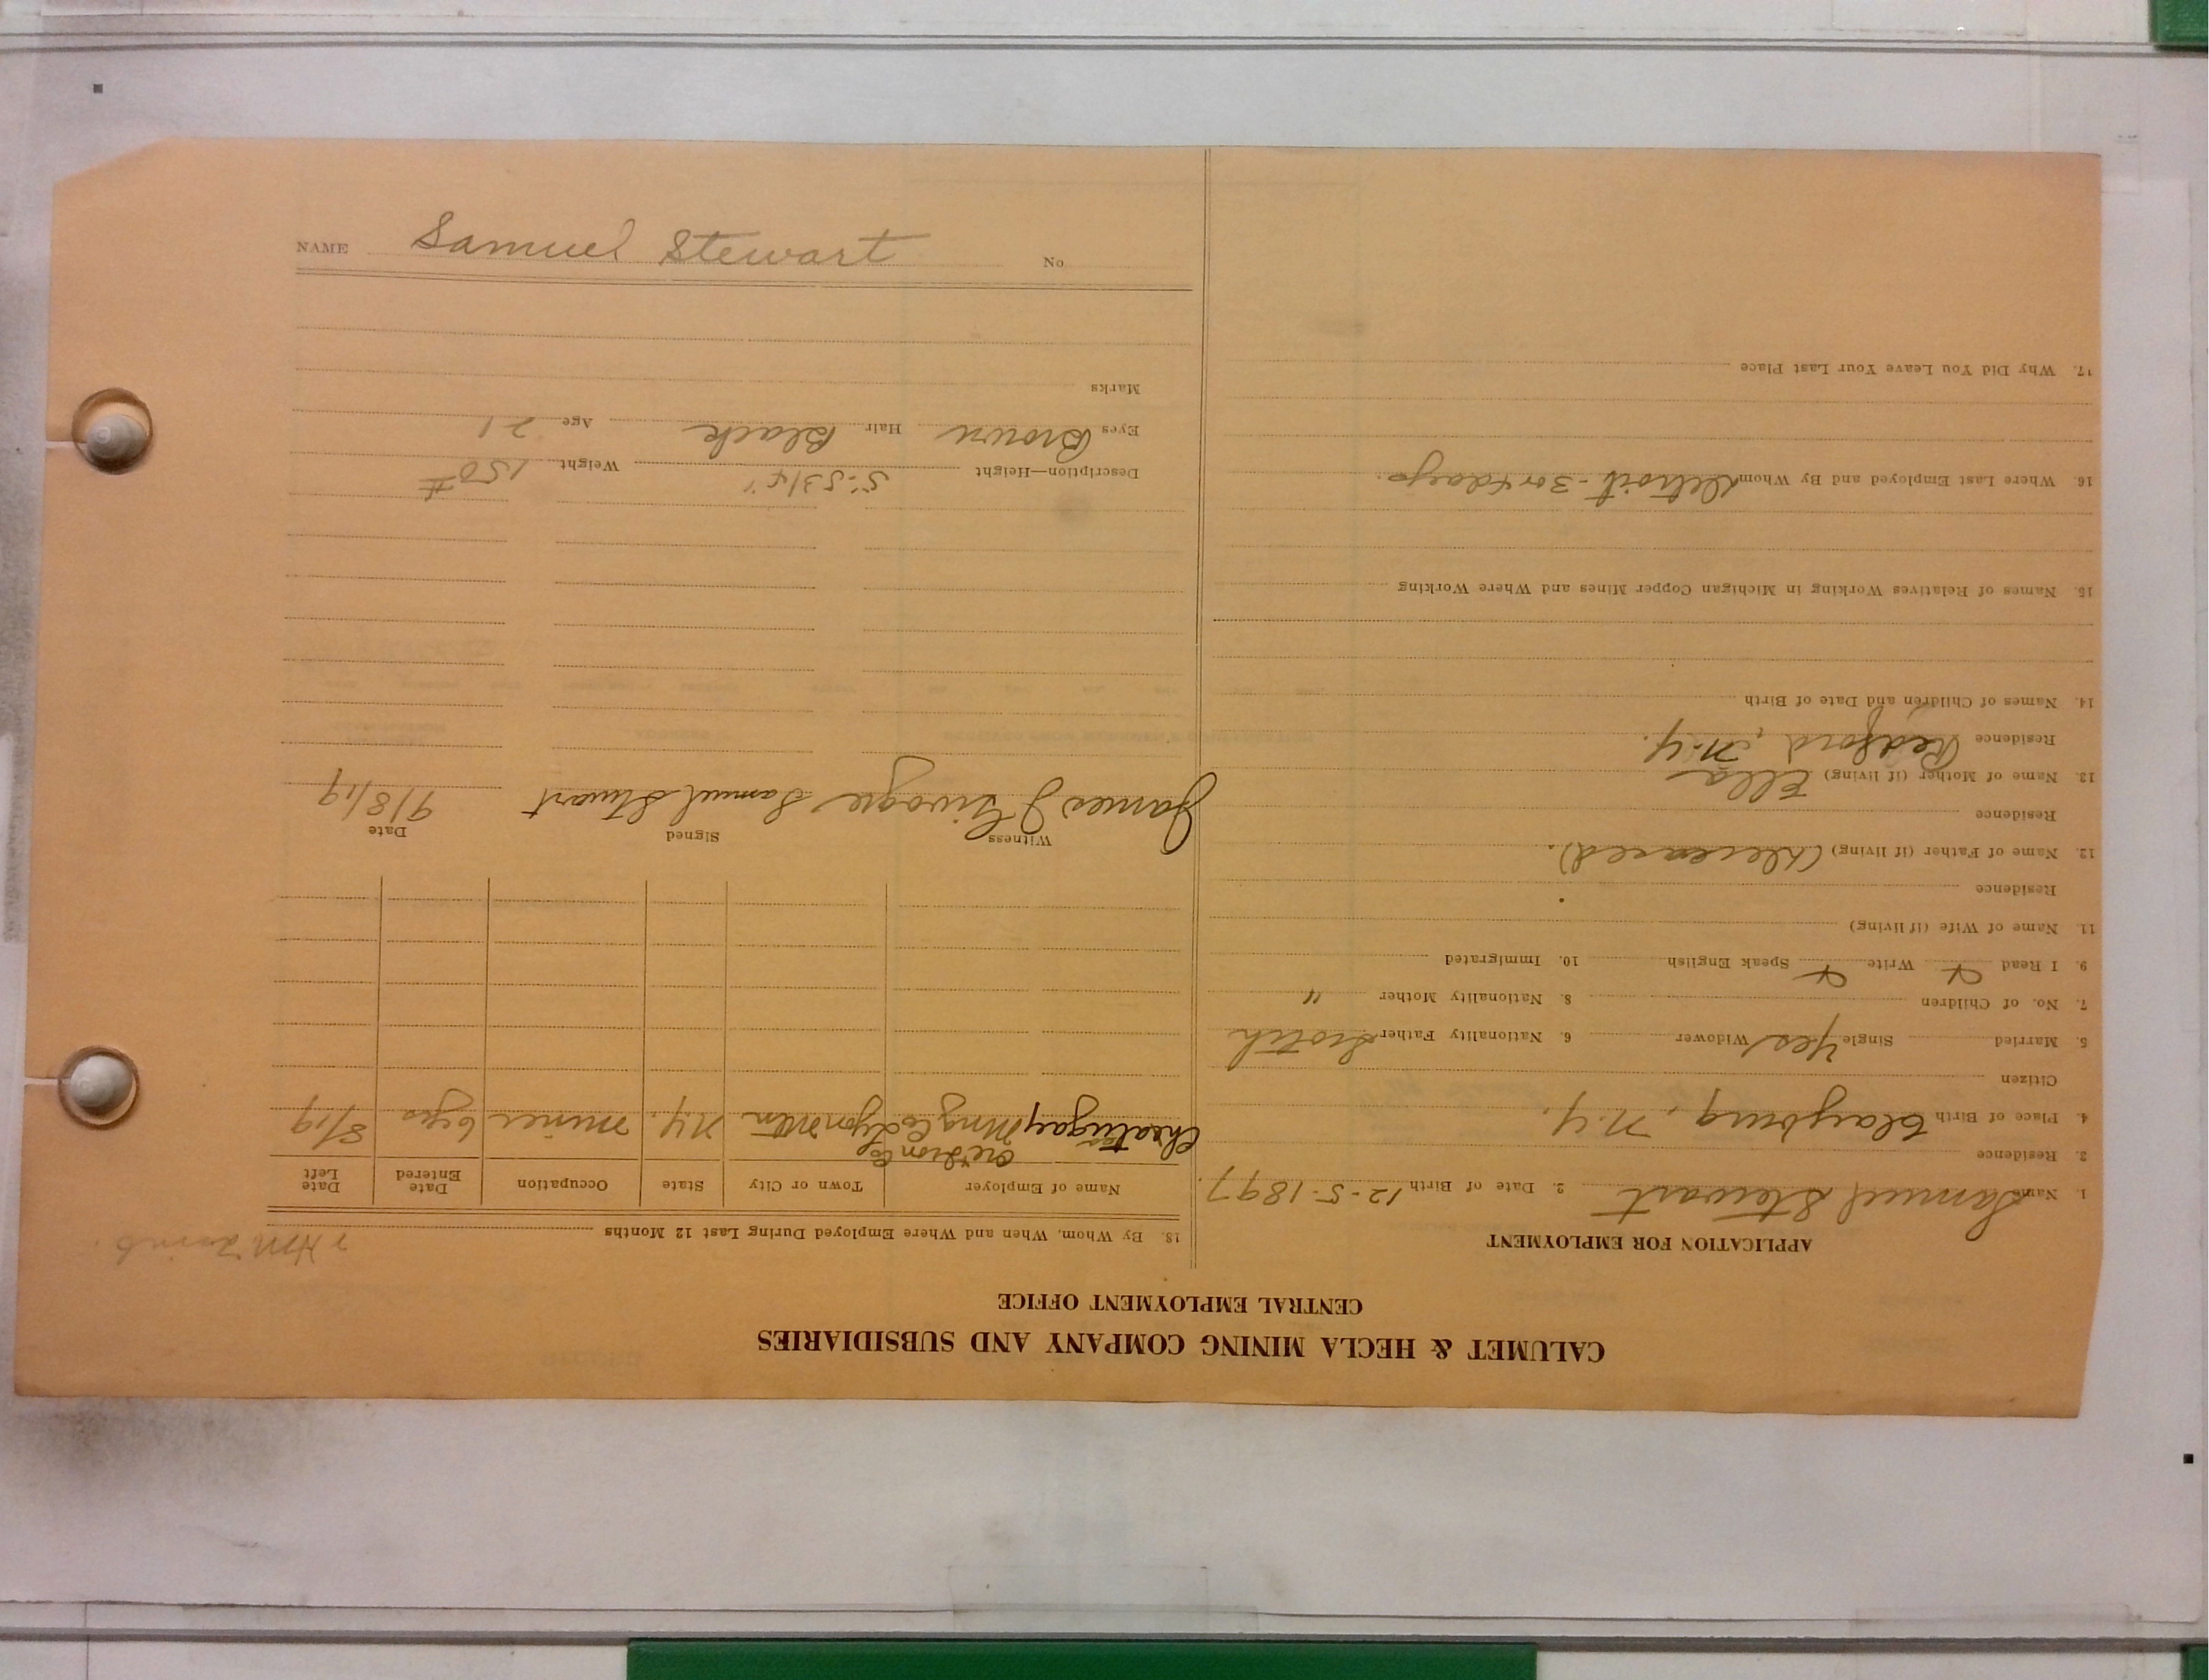 CALUMET & HECLA MINING COMPANY AND SUBSIDIARIES
CENTRAL EMPLOYMENT OFFICE
APPLICATION FOR EMPLOYMENT
1. Name Samuel Stewart 2. Date of Birth 12-5-1897
3. Residence
4. Place of Birth Clayburg, N.Y.
Citizen
5. Married Single Yes Widower 6. Nationality Father Scotch
7. No. of Children 8. Nationality Mother "
9. I Read Write Speak English 10. Immigrated
11. Name of Wife (if living)
Residence
12. Name of Father (if living) (Deceased).
Residence
13. Name of Mother (if living) Ella
Residence Redford, N.Y.
14. Names of Children and Date of Birth
15. Names of Relatives Working in Michigan Copper Mines and Where Working
16. Where Last Employed and By Whom Detroit - 3 or 4 days.
17. Why Did You Leave Your Last Place
18. By Whom, When and Where Employed During Last 12 Months
Name of Employer Town or City State Occupation Date Entered Date Left
Ore & Iron Co
Cheatugay Mng Co Lyon Mtn N.Y. miner 6 yrs 8/19
Witness Signed Date
James J Samuel Stewart 9/8/19
Description—Height 5'-5 3/4" Weight 150#
Eyes Brown Hair Black Age 21
Marks
NAME Samuel Stewart No.